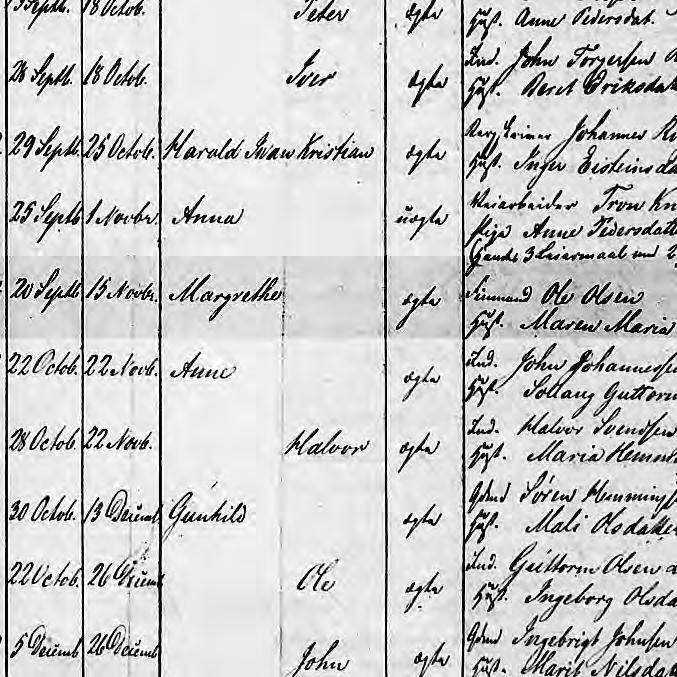 Septb. 18 Octob. Peter ægte Hust. Anne Pedersdat.
28 Septb. 18 Octob. Iver ægte Ind. John Torgersen
Hust. Beret Eriksdat
29 Septb. 25 Octob. Harald Iwan Kristian ægte Johannes
Hust. Inger Eisteinsda
25 Septb. 1 Novbr. Anna uægte Veiarbeider Tron Kn
Pige Anne Pedersdatt
20 Septb. 15 Novbr. Margrethe ægte Ole Olsen
Hust. Maren Maria
22 Octob. 22 Novb. Anne ægte Ind. John Johannesse
Hust. Solaug Guttorm
28 Octob. 22 Novb. Halvor ægte Ind. Halvor Svendsen
Hust. Maria Hemm
30 Octob. 13 Decemb Gunhild ægte Gdmd Søren Hemmings
Hust. Mali Olsdatter
22 Octob. 26 Decemb Ole ægte Ind. Guttorm Olsen
Hust. Ingeborg Olsda
5 Decemb 26 Decemb John ægte Gdmd Ingebrigt Johnsen
Hust. Marit Nilsda